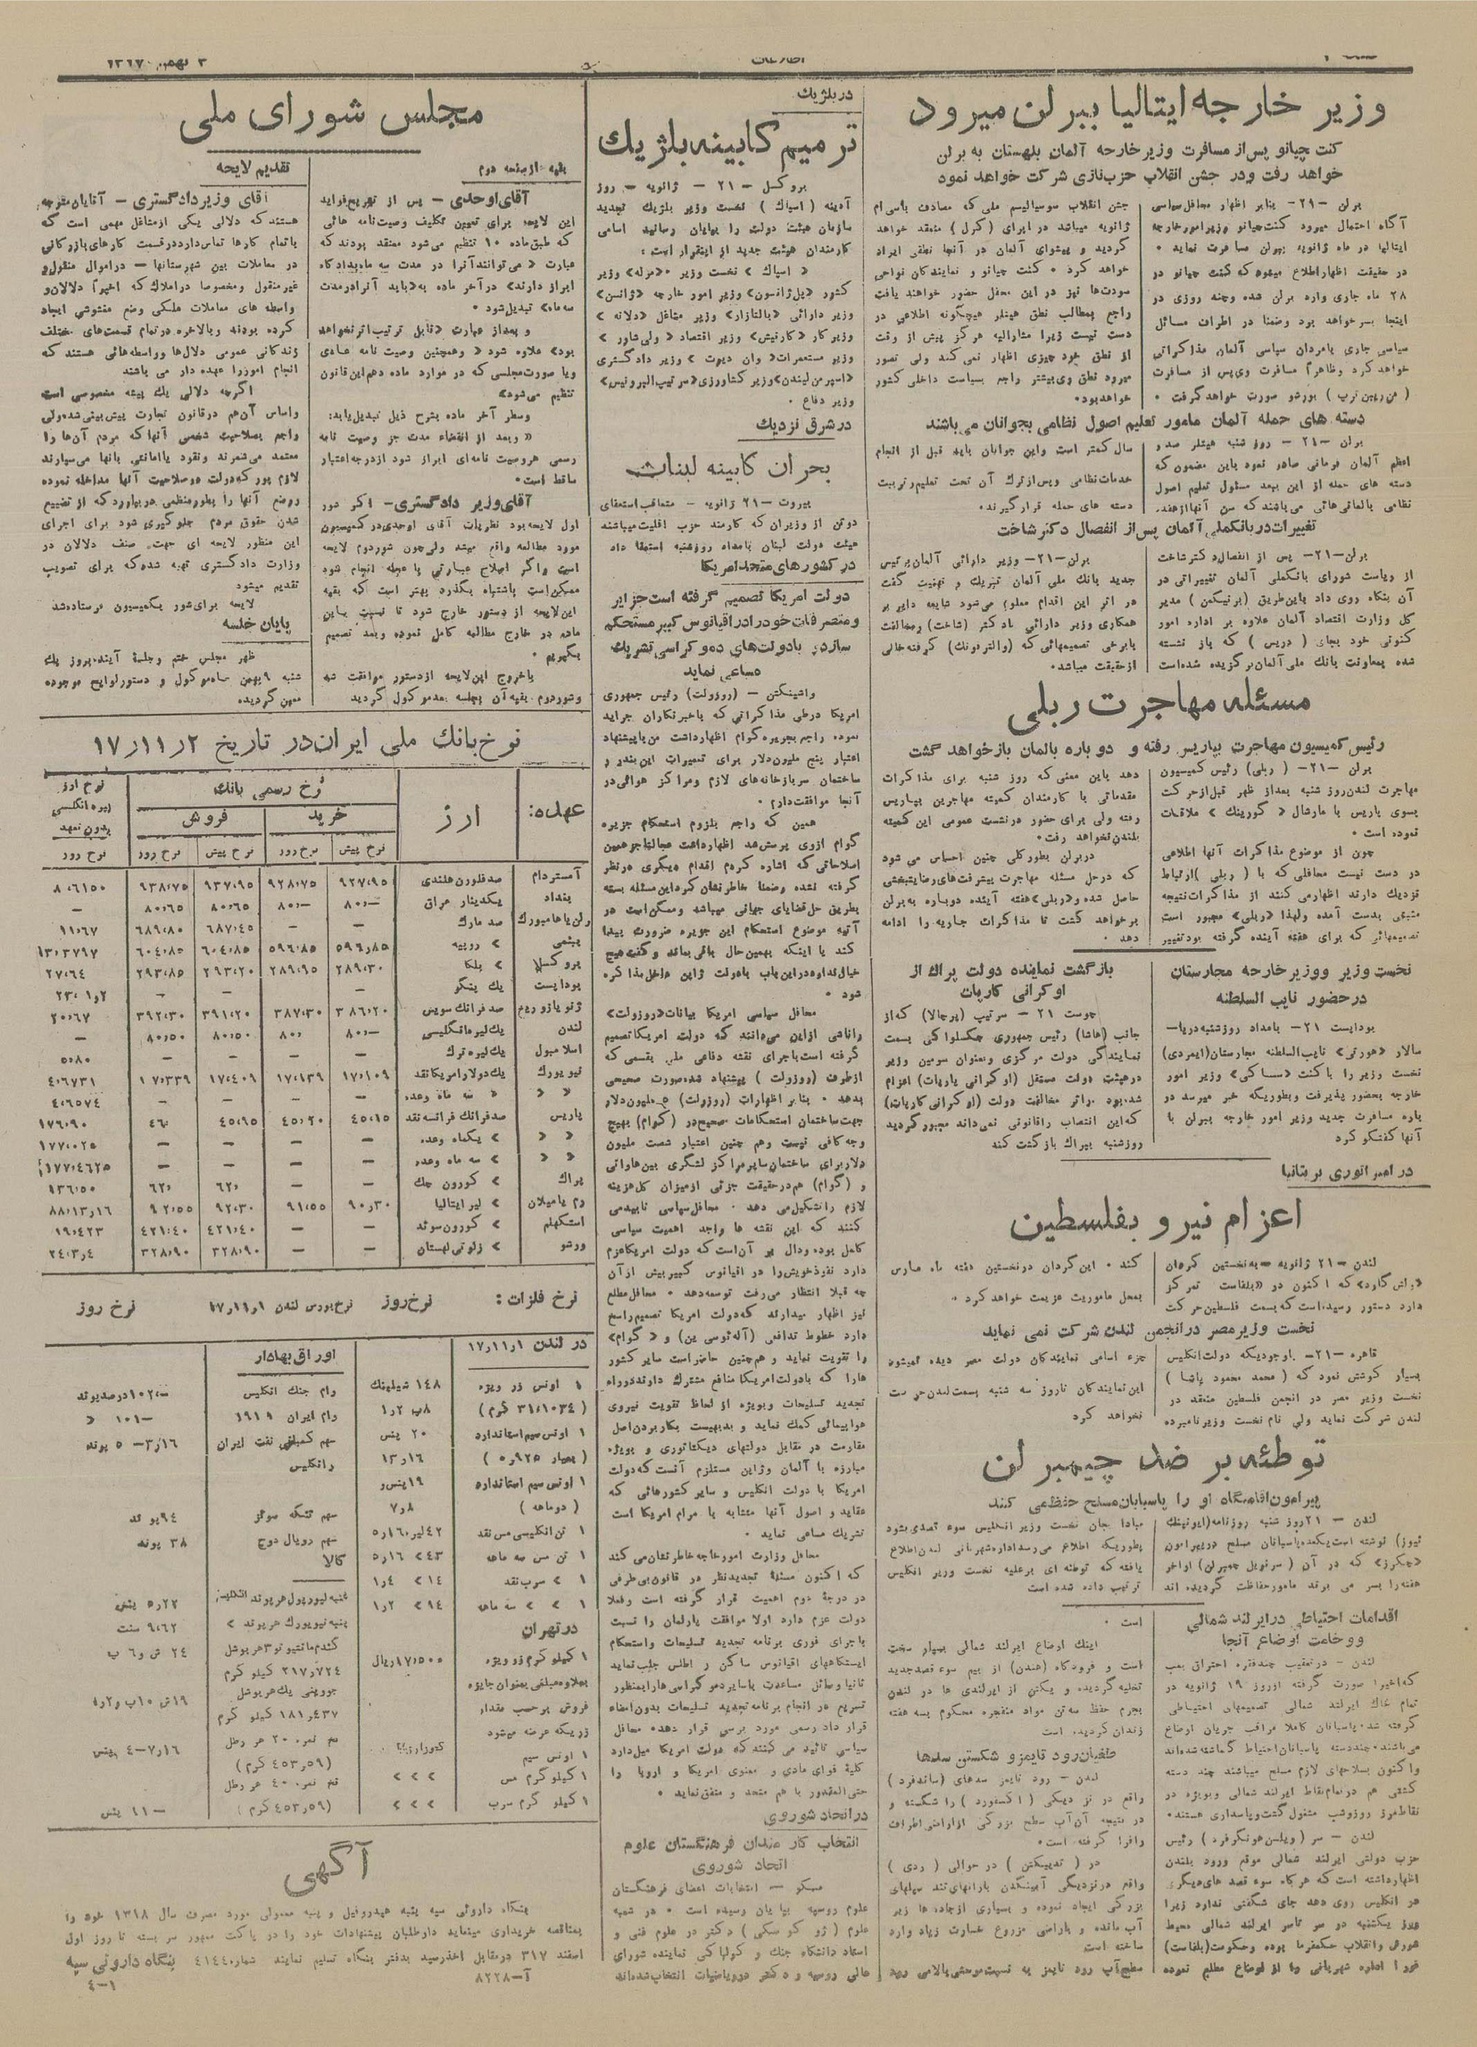 اطلاعات
وزیر خارجه ایتالیا ببرلن میرود
کنت چیانو پس از مسافرت وزیر خارجه آلمان بلهستان به برلن
خواهد رفت ودر جشن انقلاب حزب نازی شرکت خواهد نمود
برلن -۲۱- بنابر اظهار محافل سیاسی
آگاه احتمال میرود کنت چیانو وزیر امور خارجه
ایتالیا در ماه ژانویه ببرلن مسافرت نماید .
در حقیقت اظهار اطلاع میشود که کنت چیانو در
۲۸ ماه جاری وارد برلن شده وچند روزی در
اینجا بسر خواهد برد وضمناً در اطراف مسائل
سیاسی جاری بامردان سیاسی آلمان مذاکراتی
خواهد کرد وظاهراً مسافرت وی پس از مسافرت
( فن ریبن تروپ ) بورشو صورت خواهد گرفت .
جشن انقلاب سوسیالیسم ملی که مصادف باسی ام
ژانویه میباشد در اپرای ( کرل ) منعقد خواهد
گردید و پیشوای آلمان در آنجا نطقی ایراد
خواهد کرد . کنت چیانو و نمایندگان نواحی
سودت‌ها نیز در این محفل حضور خواهند یافت
راجع بمطالب نطق هیتلر هیچگونه اطلاعی در
دست نیست زیرا مشارالیه هرگز پیش از وقت
از نطق خود چیزی اظهار نمی کند ولی تصور
میرود نطق وی بیشتر راجع بسیاست داخلی کشور
خواهد بود.
دسته های حمله آلمان مامور تعلیم اصول نظامی بجوانان می باشند
برلن -۲۱- روز شنبه هیتلر صدر
اعظم آلمان فرمانی صادر نمود باین مضمون که
دسته های حمله از این ببعد مسئول تعلیم اصول
نظامی بآلمانی‌هائی می‌باشند که سن آنها از هفده
سال کمتر است واین جوانان باید قبل از انجام
خدمات نظامی وپس از ترک آن تحت تعلیم و تربیت
دسته های حمله قرار گیرند.
تغییرات در بانک ملی آلمان پس از انفصال دکتر شاخت
برلن-۲۱- پس از انفصال دکتر شاخت
از ریاست شورای بانک ملی آلمان تغییراتی در
آن بنگاه روی داد باین طریق (برنیکمن) مدیر
کل وزارت اقتصاد آلمان علاوه بر اداره امور
کنونی خود بجای (دریس) که باز نشسته
شده بمعاونت بانک ملی آلمان برگزیده شده است
برلن-۲۱- وزیر دارائی آلمان برئیس
جدید بانک ملی آلمان تبریک و تهنیت گفت
در اثر این اقدام معلوم می‌شود شایعه دایر بر
همکاری وزیر دارائی با دکتر (شاخت) و مخالفت
با برخی تصمیمهائی که (والتر فونک) گرفته خالی
از حقیقت میباشد.
مسئله مهاجرت ربلی
رئیس کمیسیون مهاجرت بپاریس رفته و دوباره بالمان باز خواهد گشت
برلن -۲۱- (ربلی) رئیس کمیسیون
مهاجرت لندن روز شنبه بعد از ظهر قبل از حرکت
بسوی پاریس با مارشال « گورینک » ملاقات
نموده است .
چون از موضوع مذاکرات آنها اطلاعی
در دست نیست محافلی که با ( ربلی ) ارتباط
نزدیک دارند اظهار می کنند از مذاکرات نتیجه
مثبتی بدست آمده ولهذا «ربلی» مجبور است
تصمیمهائی که برای هفته آینده گرفته بود تغییر
دهد باین معنی که روز شنبه برای مذاکرات
مقدماتی با کارمندان کمیته مهاجرین بپاریس
رفته ولی برای حضور در نشست عمومی این کمیته
بلندن نخواهد رفت.
در برلن بطور کلی چنین احساس می شود
که در حل مسئله مهاجرت پیشرفت‌های رضایتبخشی
حاصل شده و «ربلی» هفته آینده دوباره به برلن
بر خواهد گشت تا مذاکرات جاریه را ادامه
دهد .
نخست وزیر ووزیر خارجه مجارستان
در حضور نایب السلطنه
بوداپست -۲۱- بامداد روز شنبه دریا-
سالار «هورتی» نایب السلطنه مجارستان (ایمردی)
نخست وزیر را با کنت «ساکی» وزیر امور
خارجه بحضور پذیرفت وبطوریکه خبر میرسد در
باره مسافرت جدید وزیر امور خارجه ببرلن با
آنها گفتگو کرد
بازگشت نماینده دولت پراک از
اوکرانی کارپات
چوست ۲۱ - سرتیپ (پرچالا) که از
جانب (هاشا) رئیس جمهوری چکسلواکی بسمت
نمایندگی دولت مرکزی وبعنوان سومین وزیر
در هیئت دولت مستقل (اوکرانی کارپات) اعزام
شده بود. براثر مخالفت دولت (اوکرانی کارپات)
که این انتصاب را قانونی نمی‌داند مجبور گردید
روز شنبه بپراک باز گشت کند
در امپراتوری بریتانیا
اعزام نیرو بفلسطین
لندن -۲۱ ژانویه - به نخستین گردان
که اکنون در «بلفاست تمرکز
دارد دستور رسیده است که بسمت فلسطین حرکت
کند . این گردان در نخستین هفته ماه مارس
بمحل ماموریت عزیمت خواهد کرد .
نخست وزیر مصر در انجمن لندن شرکت نمی نماید
قاهره -۲۱- باوجودیکه دولت انگلیس
بسیار کوشش نمود که ( محمد محمود پاشا )
نخست وزیر مصر در انجمن فلسطین منعقد در
لندن شرکت نماید ولی نام نخست وزیر نامبرده
جزء اسامی نمایندگان دولت مصر دیده نمیشود
این نمایندگان تا روز سه شنبه بسمت لندن حرکت
نخواهد کرد
توطئه بر ضد چیمبرلن
پیرامون اقامتگاه او را پاسبانان مسلح حفظ می کنند
لندن - ۲۱ روز شنبه روزنامه (ایونینک
نیوز) نوشته است یکعده پاسبانان مسلح در پیرامون
«چکرز» که در آن ( سر نویل چمبرلن) اواخر
هفته را بسر می برند مامور حفاظت گردیده اند
مبادا جان نخست وزیر انگلیس سوء قصدی بشود
بطوریکه اطلاع می‌رسد اداره شهربانی لندن اطلاع
یافته که توطئه ای برعلیه نخست وزیر انگلیس
ترتیب داده شده است
اقدامات احتیاطی در ایرلند شمالی
ووخامت اوضاع آنجا
لندن - در تعقیب چند فقره احتراق بمب
که اخیراً صورت گرفته از روز ۱۹ ژانویه در
تمام خاک ایرلند شمالی تصمیمهای احتیاطی
گرفته شد. پاسبانان کاملا مراقب جریان اوضاع
می‌باشند . چند دسته پاسبانان احتیاط گماشته شده‌اند
واکنون بسلاحهای لازم مسلح میباشند چند دسته
کشتی هم در تمام نقاط ایرلند شمالی وبویژه در
نقاط مرز روز و شب مشغول گشت و پاسداری هستند.
لندن - سر ( ویلسن هونگرفرد ) رئیس
حزب دولتی ایرلند شمالی موقع ورود بلندن
اظهار داشته است که هرگاه سوء قصد های دیگری
در انگلیس روی دهد جای شگفتی ندارد زیرا
دیروز یکشنبه در سر تاسر ایرلند شمالی محیط
شورش وانقلاب حکمفرما بوده وحکومت (بلفاست)
فوراً اداره شهربانی را از اوضاع مطلع نموده
است .
اینک اوضاع ایرلند شمالی بسیار سخت
است و فرودگاه (هندن) از بیم سوء قصد جدید
تخلیه گردیده. و یکتن از ایرلندی ها در لندن
بجرم حفظ سه تن مواد منفجره محکوم بسه هفته
زندان گردیده. است
طغیان رود تایمز و شکستن سدها
لندن - رود تایمز سدهای (ساندفرد)
واقع در نزدیکی ( اکسفورد ) را شکسته و
در نتیجه آن آب سطح بزرگی از اراضی اطراف
را فرا گرفته است.
در ( تدینکتن ) در حوالی ( ردی )
واقع در نزدیکی آبینگدن بارانهای تند سیلهای
بزرگی ایجاد نموده و بسیاری از جاده ها زیر
آب مانده و باراضی مزروع خسارت زیاد وارد
ساخته است
سطح آب رود تایمز به نسبت موحشی بالا می رود
در بلژیک
ترمیم کابینه بلژیک
بروکسل -۲۱- ژانویه - روز
آدینه (اسپاک) نخست وزیر بلژیک تجدید
سازمان هیئت دولت را بپایان رسانید اسامی
کارمندان هیئت جدید از اینقرار است:
« اسپاک » نخست وزیر . «مرلو» وزیر
کشور «پل ژانسون» وزیر امور خارجه «ژانسن»
وزیر دارائی «بالتازار» وزیر مشاغل «دلاته »
وزیر کار «کارنیش» وزیر اقتصاد « ولی شاور »
وزیر مستعمرات« وان دیوت » وزیر دادگستری
«اسپر من لیندن» وزیر کشاورزی «سرتیپ البر دنیس»
وزیر دفاع .
در شرق نزدیک
بحران کابینه لبنان
بیروت -۲۱ ژانویه - متعاقب استعفای
دوتن از وزیران که کارمند حزب اقلیت میباشند
هیئت دولت لبنان بامداد روز شنبه استعفا داد
در کشورهای متحد امریکا
دولت امریکا تصمیم گرفته است جزایر
و متصرفات خود را در اقیانوس کبیر مستحکم
سازد و با دولت‌های دموکراسی تشریک
مساعی نماید
واشینگتن - (روزولت) رئیس جمهوری
امریکا درطی مذاکراتی که باخبرنگاران جراید
نموده راجع بجزیره گوام اظهار داشت من با پیشنهاد
اعتبار پنج ملیون دلار برای تعمیرات این بندر و
ساختمان سربازخانه‌های لازم ومراکز هوائی در
آنجا موافقت دارم .
همین که راجع بلزوم استحکام جزیره
گوام ازوی پرسش شد اظهار داشت عجالتاً جز همین
اصلاحاتی که اشاره کردم اقدام دیگری در نظر
گرفته نشده وضمناً خاطر نشان کرد این مسئله بسته
بطریق حل قضایای جهانی میباشد وممکن است در
آتیه موضوع استحکام این جزیره ضرورت پیدا
کند یا اینکه بهمین حال باقی بماند و گفت هیچ
خیال ندارد در این باب با دولت ژاپن داخل مذاکره
شود .
محافل سیاسی امریکا بیانات «روزولت»
را ناشی از این می‌دانند که دولت امریکا تصمیم
گرفته است باجرای نقشه دفاعی ملی بقسمی که
از طرف (روزولت ) پیشنهاد شده صورت صحیحی
بدهد . بنابر اظهارات (روزولت) ۵ ملیون دلار
جهت ساختمان استحکامات صحیح در (گوام) بهیچ
وجه کافی نیست وهم چنین اعتبار شصت ملیون
دلار برای ساختمان سایر مراکز لشگری بین هاوائی
و (گوام) هم در حقیقت جزئی از میزان کل هزینه
لازم را تشکیل می دهد . محافل سیاسی تایید می
کنند که این نقشه ها واجد اهمیت سیاسی
کامل بوده ودال بر آن است که دولت امریکا عزم
دارد نفوذ خویش را در اقیانوس کبیر بیش از آن
چه قبلا انتظار می‌رفت توسعه دهد . محافل مطلع
نیز اظهار میدارند که دولت امریکا تصمیم راسخ
دارد خطوط تدافعی (آله ئوسی ین) و «گوام»
را تقویت نماید و همچنین حاضر است سایر کشور
هارا که با دولت امریکا منافع مشترک دارند در راه
تجدید تسلیحات وبویژه از لحاظ تقویت نیروی
هواپیمائی کمک نماید و بدیهیست بکار بردن اصل
مقاومت در مقابل دولتهای دیکتاتوری و بویژه
مبارزه با آلمان وژاپن مستلزم آنست که دولت
امریکا با دولت انگلیس و سایر کشورهائی که
عقاید و اصول آنها متشابه با مرام امریکا است
تشریک مساعی نماید .
محافل وزارت امور خارجه خاطر نشان می کند
که اکنون مسئلهٔ تجدید نظر در قانون بی طرفی
در درجهٔ دوم اهمیت قرار گرفته است وفعلا
دولت عزم دارد اولا موافقت پارلمان را نسبت
باجرای فوری برنامه تجدید تسلیحات واستحکام
ایستگاههای اقیانوس ساکن و اطلس جلب نماید
ثانیاً وسائل مساعدت با سایر دموکراسی ها را بمنظور
تسریع در انجام برنامه تجدید تسلیحات بدون امضاء
قرار داد رسمی مورد بررسی قرار دهد. محافل
سیاسی تائید می کنند که دولت امریکا میل دارد
کلیهٔ قوای مادی و معنوی امریکا و اروپا را
حتی المقدور با هم متحد و متفق نماید .
در اتحاد شوروی
انتخاب کارمندان فرهنگستان علوم
اتحاد شوروی
مسکو - انتخابات اعضای فرهنگستان
علوم روسیه بپایان رسیده است . در شعبه
علوم ( ژو کوسکی ) دکتر در علوم فنی و
استاد دانشگاه جنک و کولپا کی نماینده شورای
عالی روسیه و دکتر در ریاضیات انتخاب شده‌اند
مجلس شورای ملی
بقیه از صفحه دوم
آقای اوحدی - پس از تهریج فواید
این لایحه برای تعیین تکلیف وصیت نامه هائی
که طبق ماده ۱۰ تنظیم می‌شود معتقد بودند که
عبارت « می‌توانند آنرا در مدت سه ماه بدادگاه
ابراز دارند» در آخر ماده به «باید آنرا در مدت
سه ماه» تبدیل شود .
و بعد از عبارت «قابل ترتیب اثر نخواهد
بود» علاوه شود « وهمچنین وصیت نامه عادی
ویا صورت مجلسی که در موارد ماده دهم این قانون
تنظیم می‌شود»
وسطر آخر ماده بشرح ذیل تبدیل یابد:
« وبعد از انقضاء مدت جز وصیت نامه
رسمی هر وصیت نامه‌ای ابراز شود از درجه اعتبار
ساقط است.»
آقای وزیر دادگستری - اگر شور
اول لایحه بود نظریات آقای اوحدی در کمیسیون
مورد مطالعه واقع میشد ولی چون شور دوم لایحه
است واگر اصلاح عبارتی با عجله انجام شود
ممکن است باشتباه بگذرد بهتر است که بقیه
این لایحه از دستور خارج شود تا نسبت باین
ماده در خارج مطالعه کامل نموده وبعد تصمیم
بگیریم .
با خروج این لایحه از دستور موافقت شد
و شور دوم. بقیه آن بجلسه بعد موکول گردید
تقدیم لایحه
آقای وزیر دادگستری - آقایان متوجه
هستند که دلالی یکی از مشاغل مهمی است که
باتمام کارها تماس دارد در قسمت کارهای بازرگانی
در معاملات بین شهرستانها - در اموال منقول و
غیر منقول ومخصوصاً در املاک که اخیراً دلالان و
واسطه های معاملات ملکی وضع مغشوشی ایجاد
کرده بودند وبالاخره در تمام قسمت‌های مختلف
زندگانی عمومی دلال‌ها وواسطه‌هائی هستند که
انجام امور را عهده دار می باشند
اگرچه دلالی یک پیشه مخصوصی است
واساس آن هم در قانون تجارت پیش بینی شده ولی
راجع بصلاحیت شخصی آنها که مردم آن‌ها را
معتمد می‌شمرند ونقود یا امانتی بآنها می‌سپارند
لازم بود که دولت در صلاحیت آنها مداخله نموده
ووضع آنها را بطور منظمی در بیاورد که از تضییع
شدن حقوق مردم جلوگیری شود برای اجرای
این منظور لایحه ای جهت صنف دلالان در
وزارت دادگستری تهیه شده که برای تصویب
تقدیم میشود
لایحه برای شور بکمیسیون فرستاده شد
پایان جلسه
ظهر مجلس ختم وجلسهٔ آینده بروز یک
شنبه ۹ بهمن ماه موکول و دستور لوایح موجوده
معین گردید.
نرخ بانک ملی ایران در تاریخ ۱۷٫۱۱٫۲
عهده: | ارز | نرخ رسمی بانک | نرخ ارز غیر انگلیسی بدون تعهد
خرید | فروش
نرخ پیش | نرخ روز | نرخ پیش | نرخ روز | نرخ روز
آمستردام | صد فلورن هلندی | ۹۲۷٫۹۵ | ۹۲۸٫۷۵ | ۹۳۷٫۹۵ | ۹۳۸٫۷۵ | ۸٫۶۱۵۰
بغداد | یکدینار عراق | ۸۰٫- | ۸۰٫- | ۸۰٫۶۵ | ۸۰٫۶۵ | -
برلن یا هامبورک | صد مارک | - | - | ۶۸۷٫۴۵ | ۶۸۹٫۸۰ | ۱۱٫۶۷
بمبئی | » روپیه | ۵۹۶٫۸۵ | ۵۹۶٫۸۵ | ۶۰۴٫۸۵ | ۶۰۴٫۸۵ | ۱۳٫۳۷۹۷
بروکسل | » بلکا | ۲۸۹٫۳۰ | ۲۸۹٫۹۵ | ۲۹۳٫۲۰ | ۲۹۳٫۸۵ | ۲۷٫۶۴
بوداپست | یک پنگو | - | - | - | - | ۲۳٫۱٫۲
ژنو یا زوریخ | صد فرانک سویس | ۳۸۶٫۲۰ | ۳۸۷٫۳۰ | ۳۹۱٫۲۰ | ۳۹۲٫۳۰ | ۲۰٫۶۷
لندن | یک لیره انگلیسی | ۸۰٫- | ۸۰٫- | ۸۰٫۵۰ | ۸۰٫۵۰ | -
اسلامبول | یک لیره ترک | - | - | - | - | ۵٫۸۰
نیویورک | یک دولار امریکا نقد | ۱۷٫۱۰۹ | ۱۷٫۱۳۹ | ۱۷٫۴۰۹ | ۱۷٫۳۳۹ | ۴٫۶۷۳۱
» » | » سه ماه وعده | - | - | - | - | ۴٫۶۵۷۴
پاریس | صد فرانک فرانسه نقد | ۴۵٫۱۵ | ۴۵٫۲۰ | ۴۵٫۹۵ | ۴۶٫ | ۱۷۶٫۹۰
» » | » یکماه وعده | - | - | - | - | ۱۷۷٫۰۲۵
» » | » سه ماه وعده | - | - | - | - | ۱۷۷٫۴۶۲۵
پراک | » کورون چک | - | - | ۶۲٫ | ۶۲٫ | ۱۳۶٫۵۰
رم یا میلان | » لیر ایتالیا | ۹۰٫۳۰ | ۹۱٫۵۵ | ۹۲٫۳۰ | ۹۲٫۵۵ | ۸۸٫۱۳٫۱۶
استکهلم | » کورون سوئد | - | - | ۴۲۱٫۴۰ | ۴۲۱٫۴۰ | ۱۹٫۴۲۳
ورشو | » زلوتی لهستان | - | - | ۳۲۸٫۹۰ | ۳۲۸٫۹۰ | ۲۴٫۳٫۴
نرخ فلزات : | نرخ روز | نرخ بورس لندن ۱۷٫۱۱٫۱ | نرخ روز
در لندن ۱۷٫۱۱٫۱ | اوراق بهادار
۱ اونس زر ویژه | ۱۴۸ شیلینک | وام جنک انگلیس | ۱۰۲٫- درصد پوند
( ۳۱٫۱۰۳۴ گرم ) | ۸ب ۱٫۲ | وام ایران ۱۹۱۹ | ۱۰۱-
۱ اونس سیم استاندارد | ۲۰ پنس | سهم کمپانی نفت ایران | ۵-۳٫۱۶ پوند
( بعیار ۰٫۹۲۵ ) | ۱۳٫۱۶ | و انگلیس
۱ اونس سیم استاندارد | ۱۹ پنس و
( دوماهه ) | ۷٫۸ | سهم تنگه سوئز | ۹۴ پوند
۱ تن انگلیسی مس نقد | سهم رویال دوچ | ۳۸ پوند
۱ تن مس سه ماهه | کالا
۱ » سرب نقد | پنبه لیورپول هر پوند انگلیس | ۵٫۲۲ پنس
۱ » » سه ماهه | پنبه نیویورک هر پوند » | ۹٫۶۲ سنت
در تهران | ۲۴ ش و ۶ پ
۱ کیلو گرم زر ویژه | ۱۷٫۵۰۰ ریال | ۲۱۷٫۷۲۴ کیلو گرم
بعلاوه مبلغی بعنوان جایزه
فروش برحسب مقدار | ۱۸۱٫۴۳۷ کیلو گرم
زریکه عرضه میشود | نخ نمره ۲۰ هر رطل
۱ اونس سیم | (۴۵۳٫۵۹ گرم )
۱ کیلو گرم مس | » » » | نخ نمره ۴۰ هر رطل
۱ کیلو گرم سرب | » » » | (۴۵۳٫۵۹ گرم ) | ۱۱- پنس
آگهی
بنگاه داروئی سپه پنبه هیدروفیل و پنبه معمولی مورد مصرف سال ۱۳۱۸ خود را
بمناقصه خریداری مینماید داوطلبان پیشنهادات خود را در پاکت ممهور سر بسته تا روز اول
اسفند ۳۱۷ در مقابل اخذ رسید بدفتر بنگاه تسلیم نمایند شماره ۴۱۴۴ بنگاه داروئی سپه
آ-۸۲۲۸ ۱-۴